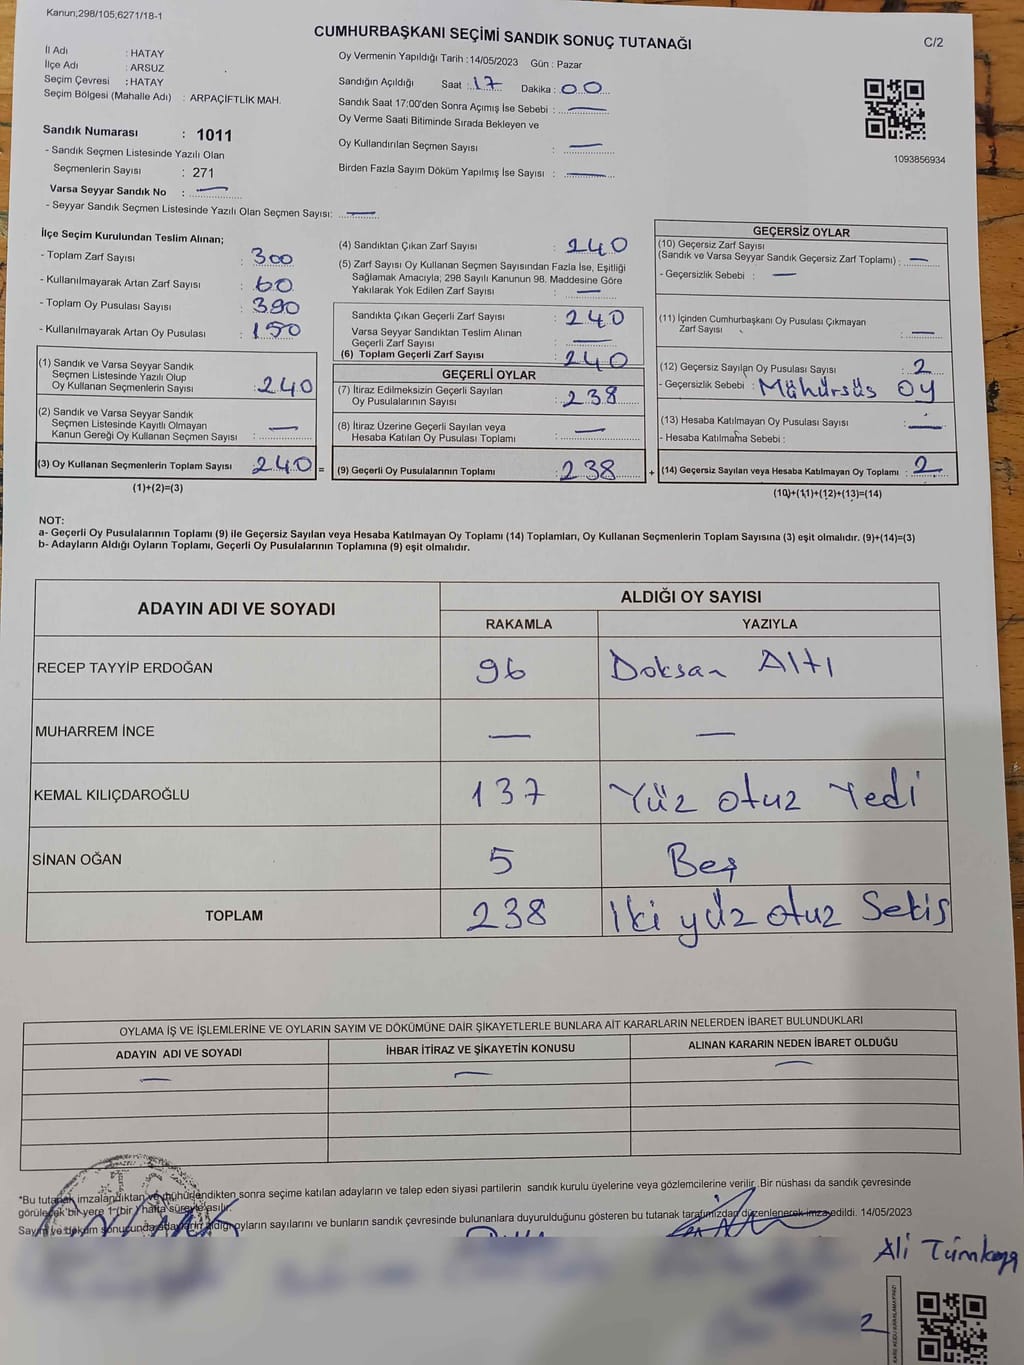 Kanun,298/105,6271/18-1
CUMHURBAŞKANI SEÇİMİ SANDIK SONUÇ TUTANAĞI
C/2
İl Adı : HATAY
İlçe Adı : ARSUZ
Seçim Çevresi : HATAY
Seçim Bölgesi (Mahalle Adı) : ARPAÇİFTLİK MAH.
Sandık Numarası : 1011
- Sandık Seçmen Listesinde Yazılı Olan
Seçmenlerin Sayısı : 271
Varsa Seyyar Sandık No : —
- Seyyar Sandık Seçmen Listesinde Yazılı Olan Seçmen Sayısı: —
Oy Vermenin Yapıldığı Tarih :14/05/2023 Gün : Pazar
Sandığın Açıldığı Saat : 17 Dakika : 00
Sandık Saat 17:00'den Sonra Açımış İse Sebebi : —
Oy Verme Saati Bitiminde Sırada Bekleyen ve
Oy Kullandırılan Seçmen Sayısı : —
Birden Fazla Sayım Döküm Yapılmış İse Sayısı : —
1093856934
İlçe Seçim Kurulundan Teslim Alınan;
- Toplam Zarf Sayısı : 300
- Kullanılmayarak Artan Zarf Sayısı : 60
- Toplam Oy Pusulası Sayısı : 390
- Kullanılmayarak Artan Oy Pusulası : 150
(1) Sandık ve Varsa Seyyar Sandık
Seçmen Listesinde Yazılı Olup
Oy Kullanan Seçmenlerin Sayısı : 240
(2) Sandık ve Varsa Seyyar Sandık
Seçmen Listesinde Kayıtlı Olmayan
Kanun Gereği Oy Kullanan Seçmen Sayısı : —
(3) Oy Kullanan Seçmenlerin Toplam Sayısı : 240 =
(1)+(2)=(3)
(4) Sandıktan Çıkan Zarf Sayısı : 240
(5) Zarf Sayısı Oy Kullanan Seçmen Sayısından Fazla İse, Eşitliği
Sağlamak Amacıyla, 298 Sayılı Kanunun 98. Maddesine Göre
Yakılarak Yok Edilen Zarf Sayısı : —
Sandıkta Çıkan Geçerli Zarf Sayısı : 240
Varsa Seyyar Sandıktan Teslim Alınan
Geçerli Zarf Sayısı : —
(6) Toplam Geçerli Zarf Sayısı : 240
GEÇERLİ OYLAR
(7) İtiraz Edilmeksizin Geçerli Sayılan
Oy Pusulalarının Sayısı : 238
(8) İtiraz Üzerine Geçerli Sayılan veya
Hesaba Katılan Oy Pusulası Toplamı : —
(9) Geçerli Oy Pusulalarının Toplamı : 238 +
GEÇERSİZ OYLAR
(10) Geçersiz Zarf Sayısı
(Sandık ve Varsa Seyyar Sandık Geçersiz Zarf Toplamı) : —
- Geçersizlik Sebebi : —
(11) İçinden Cumhurbaşkanı Oy Pusulası Çıkmayan
Zarf Sayısı : —
(12) Geçersiz Sayılan Oy Pusulası Sayısı : 2
- Geçersizlik Sebebi : Mühürsüs oy
(13) Hesaba Katılmayan Oy Pusulası Sayısı : —
- Hesaba Katılmama Sebebi :
(14) Geçersiz Sayılan veya Hesaba Katılmayan Oy Toplamı : 2
(10)+(11)+(12)+(13)=(14)
NOT:
a- Geçerli Oy Pusulalarının Toplamı (9) ile Geçersiz Sayılan veya Hesaba Katılmayan Oy Toplamı (14) Toplamları, Oy Kullanan Seçmenlerin Toplam Sayısına (3) eşit olmalıdır. (9)+(14)=(3)
b- Adayların Aldığı Oyların Toplamı, Geçerli Oy Pusulalarının Toplamına (9) eşit olmalıdır.
ADAYIN ADI VE SOYADI ALDIĞI OY SAYISI
RAKAMLA YAZIYLA
RECEP TAYYİP ERDOĞAN 96 Doksan Altı
MUHARREM İNCE — —
KEMAL KILIÇDAROĞLU 137 Yüz otuz Yedi
SİNAN OĞAN 5 Beş
TOPLAM 238 İki yüz otuz Sekis
OYLAMA İŞ VE İŞLEMLERİNE VE OYLARIN SAYIM VE DÖKÜMÜNE DAİR ŞİKAYETLERLE BUNLARA AİT KARARLARIN NELERDEN İBARET BULUNDUKLARI
ADAYIN ADI VE SOYADI İHBAR İTİRAZ VE ŞİKAYETİN KONUSU ALINAN KARARIN NEDEN İBARET OLDUĞU
— — —
*Bu tutanak imzalandıktan ve mühürlendikten sonra seçime katılan adayların ve talep eden siyasi partilerin sandık kurulu üyelerine veya gözlemcilerine verilir. Bir nüshası da sandık çevresinde
görülecek bir yere 1 (bir) hafta süreyle asılır.
Sayım ve döküm sonucunda adayların aldığı oyların sayılarını ve bunların sandık çevresinde bulunanlara duyurulduğunu gösteren bu tutanak tarafımızdan düzenlenerek imza edildi. 14/05/2023
Ali
2